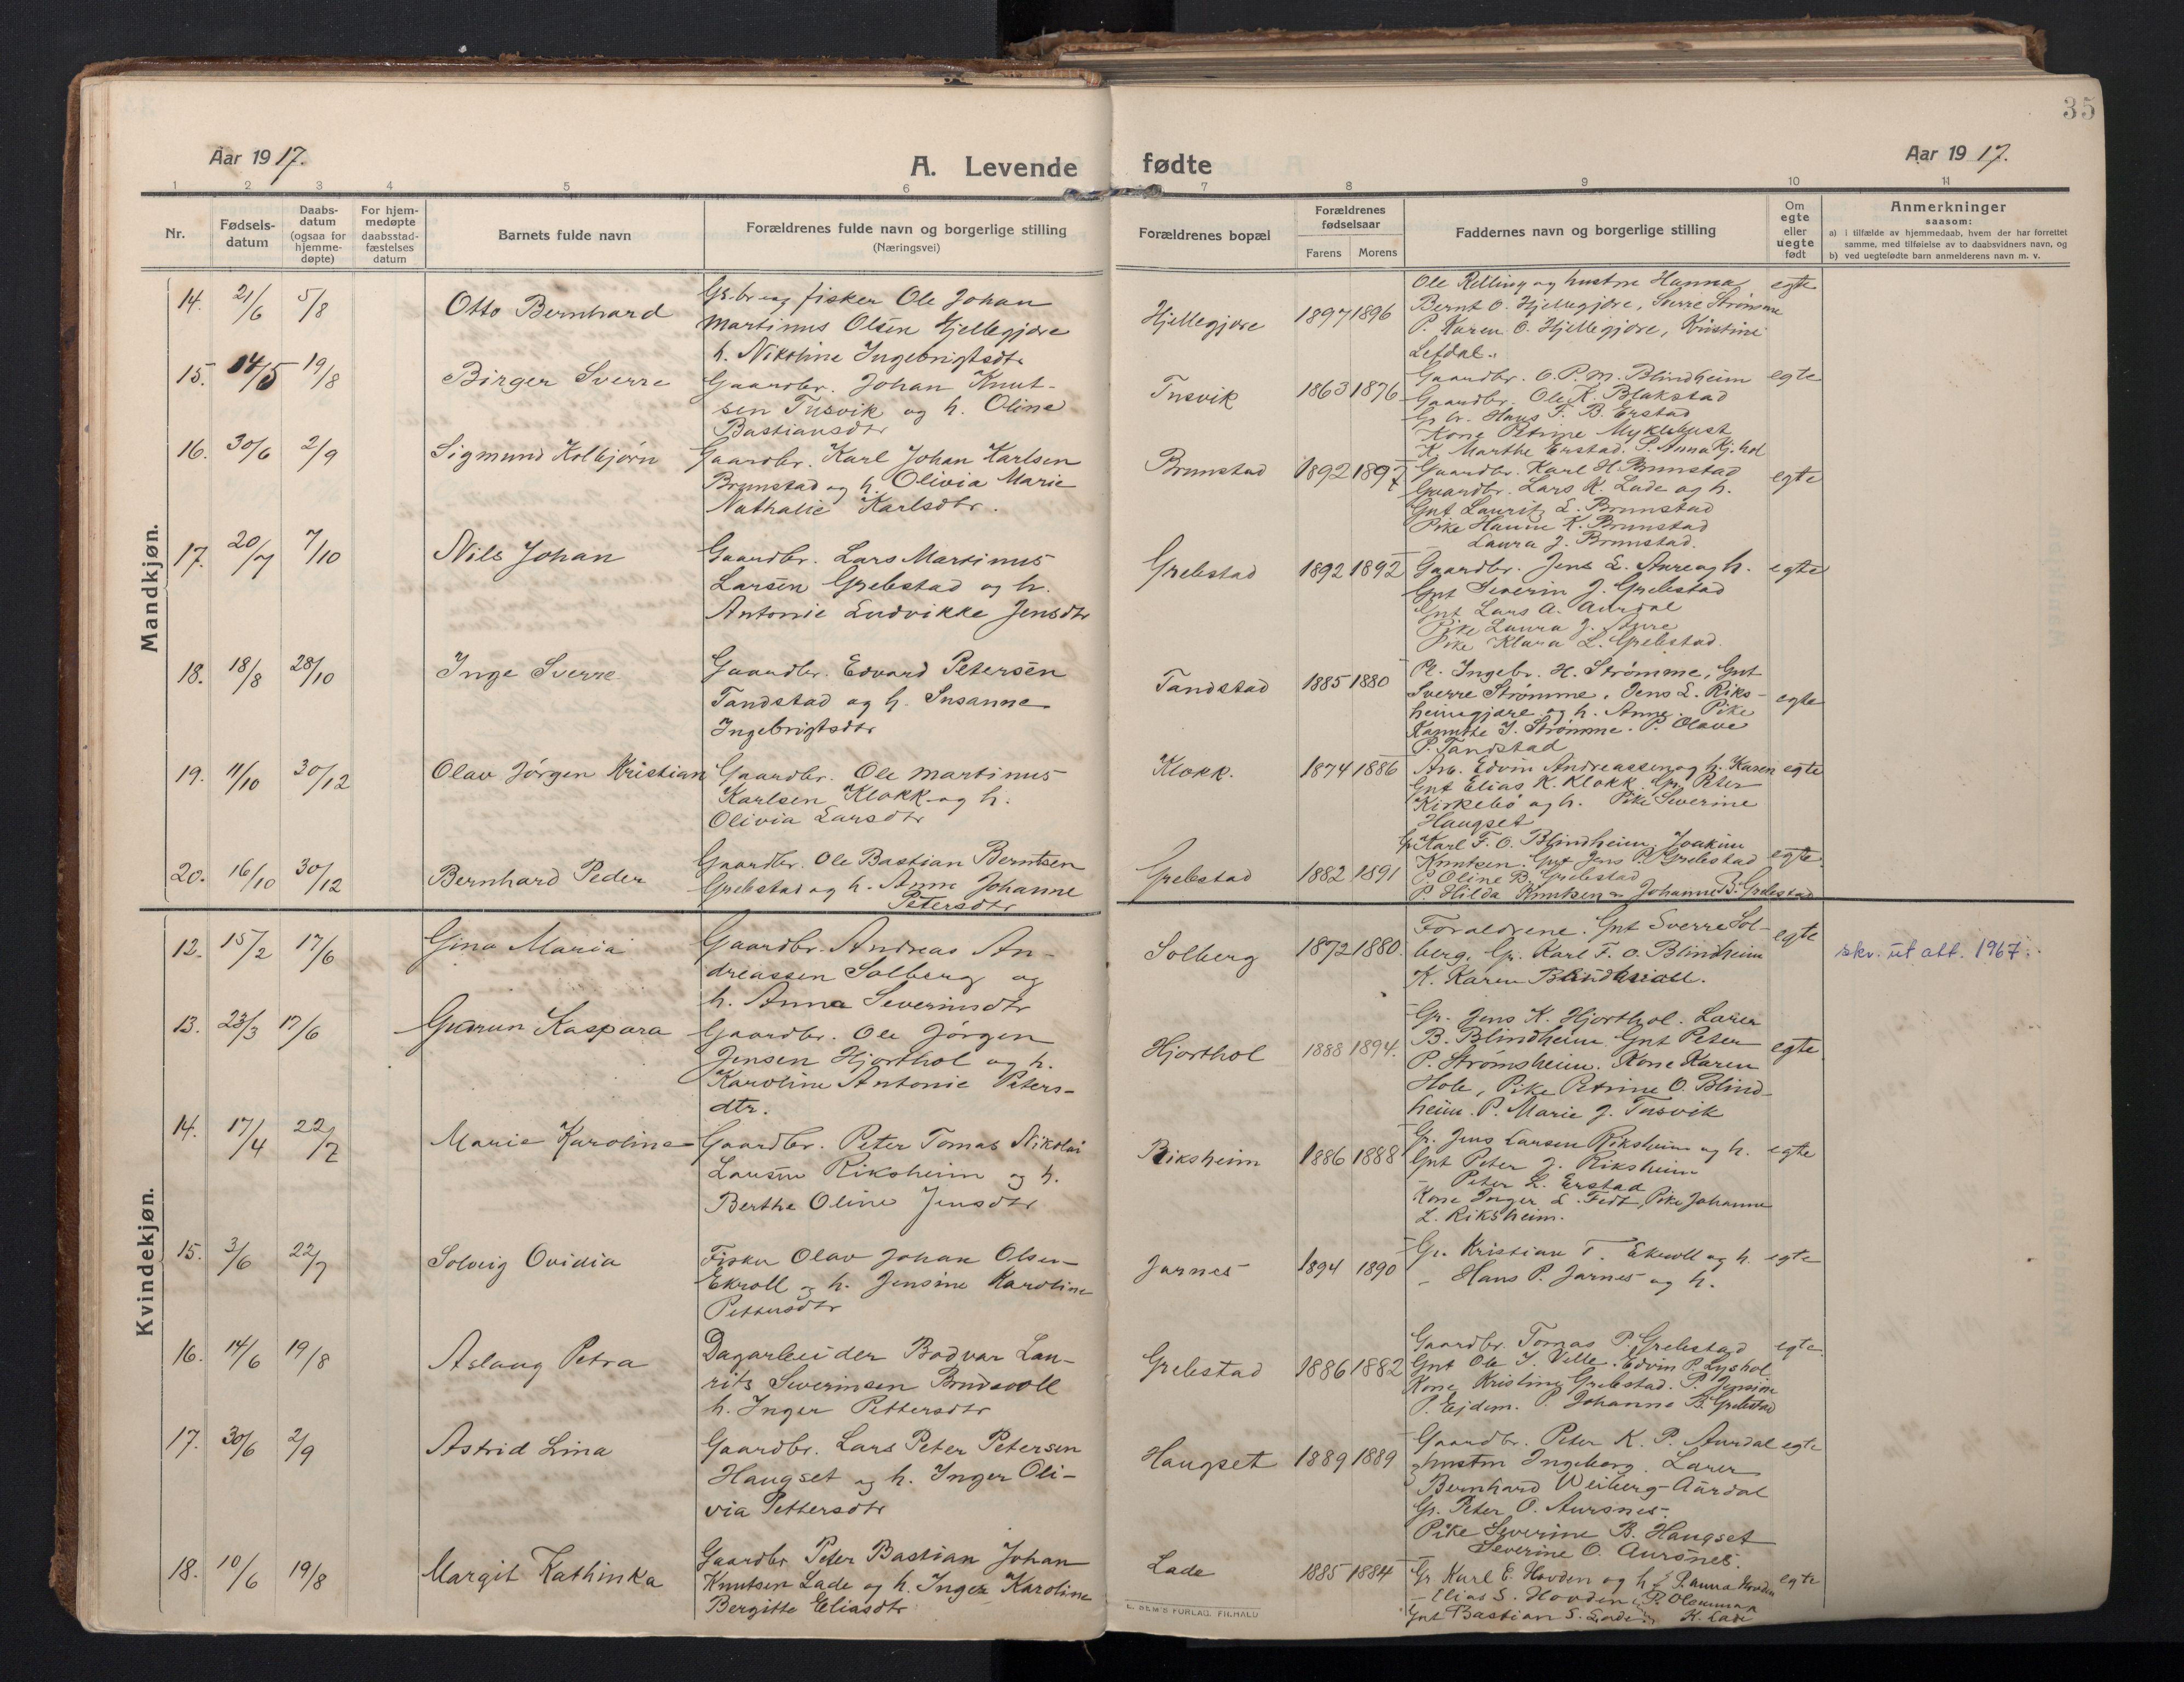 35
Aar 1917.
A. Levende fødte
Aar 1917.
1 2 3 4 5 6 7 8 9 10 11
Nr.
Fødsels-
datum
Daabs-
datum
(ogsaa for
hjemme-
døpte)
For hjem-
medøpte
daabsstad-
fæstelses
datum
Barnets fulde navn
Forældrenes fulde navn og borgerlige stilling
(Næringsvei)
Forældrenes bopæl
Forældrenes
fødselsaar
Farens Morens
Faddernes navn og borgerlige stilling
Om
egte
eller
uegte
født
Anmerkninger
saasom:
a) i tilfælde av hjemmedaab, hvem der har forrettet
samme, med tilføielse av to daabsvidners navn, og
b) ved uegtefødte barn anmelderens navn m. v.
Mandkjøn.
14. 21/6 5/8 Otto Bernhard
Gr.br. og fisker Ole Johan
Martinus Olsen Hjellegjære
h. Nikoline Ingebrigtsdtr
Hjellegjære 1897 1896
Ole Relling og hustru Hanna
Bernt O. Hjellegjære, Sverre Strømme
P. Karen O. Hjellegjære, Kristine
Lefdal.
egte
15. 14/5 19/8 Birger Sverre
Gaardbr. Johan Knut-
sen Tusvik og h. Oline
Bastiansdtr
Tusvik 1863 1876
Gaardbr. O. P. M. Blindheim
Gaardbr. Ole K. Blakstad
Gr. br. Hans F. B. Erstad
Kone Petrine Myklebust
K. Marthe Erstad. P. Anna Kj. hol
egte
16. 30/6 2/9 Sigmund Kolbjørn
Gaardbr. Karl Johan Karlsen
Brunstad og h. Olivia Marie
Nathalie Karlsdtr.
Brunstad 1892 1897
Gaardbr. Karl H. Brunstad
Gaardbr. Lars K. Lade og h.
Gnt Lauritz L. Brunstad
Pike Hanna K. Brunstad
Laura J. Brunstad.
egte
17. 20/7 7/10 Nils Johan
Gaardbr. Lars Martinus
Larsen Grebstad og h.
Antonie Ludvikke Jensdtr
Grebstad 1892 1892
Gaardbr. Jens L. Aure og h.
Gnt Severin J. Grebstad
Gnt Lars A. Aurdal
Pike Laura J. Aure
Pike Klara L. Grebstad.
egte
18. 18/8 28/10 Inge Sverre
Gaardbr. Edvard Petersen
Tandstad og h. Susanne
Ingebrigtsdtr
Tandstad 1885 1880
Gr. Ingebr. H. Strømme, Gnt
Sverre Strømme, Jens L. Riks-
heimgjære og h. Anne. Pike
Kanutte I. Strømme. P. Olave
P. Tandstad
egte
19. 11/10 30/12 Olav Jørgen Kristian
Gaardbr. Ole Martinus
Karlsen Klokk og h.
Olivia Larsdtr
Klokk. 1874 1886
Arb. Edvin Andreassen og h. Karen
Gnt Elias K. Klokk. Gr. Peter
Kirkebø og h. Pike Severine
Haugset
egte
20. 16/10 30/12 Bernhard Peder
Gaardbr. Ole Bastian Berntsen
Grebstad og h. Anne Johanne
Petersdtr
Grebstad 1882 1891
Gr. Karl F. O. Blindheim, Joakim
Knutsen. Gnt Jens P. Grebstad
P. Oline B. Grebstad
P. Hilda Knutsen Johanne B. Grebstad
egte
Kvindekjøn.
12. 15/2 17/6 Gina Maria
Gaardbr. Andreas An-
dreassen Solberg og
h. Anna Severinsdtr
Solberg 1872 1880.
Forældrene. Gnt Sverre Sol-
berg, Gr. Karl F. O. Blindheim
K. Karen
egte
skv. ut att. 1967.
13. 23/3 17/6 Gudrun Kaspara
Gaardbr. Ole Jørgen
Jensen Hjorthol og h.
Karoline Antonie Peters-
dtr.
Hjorthol 1888 1894.
Gr. Jens K. Hjorthol. Lærer
B. Blindheim. Gnt Peter
P. Strømsheim. Kone Karen
Hole, Pike Petrine O. Blind-
heim. P. Marie J. Tusvik
egte
14. 17/4 22/7 Marie Karoline
Gaardbr. Peter Tomas Nikolai
Larsen Riksheim og h.
Berthe Oline Jensdtr
Riksheim 1886 1888
Gr. Jens Larsen Riksheim og h.
Gnt Peter J. Riksheim
Peter L. Erstad
Kone Inger L. Fedt, Pike Johanne
L. Riksheim.
egte
15. 3/6 22/7 Solveig Ovidia
Fisker Olav Johan Olsen
Ekroll og h. Jensine Karoline
Pettersdtr
Jarnes 1894 1890
Gr. Kristian T. Ekroll og h.
– Hans P. Jarnes og h.
egte
16. 14/6 19/8 Aslaug Petra
Dagarbeider Bodvar Lau-
rits Severinsen Brudevoll
h. Inger Pettersdtr
Grebstad 1886 1882
Gaardbr. Tomas P. Grebstad
Gnt Ole I. Velle. Edvin P. Lyshol
Kone Kristine Grebstad. P. Jensine
P. Ejdem. P. Johanne B. Grebstad
egte
17. 30/6 2/9 Astrid Lina
Gaardbr. Lars Peter Petersen
Haugset og h. Inger Oli-
via Pettersdtr
Haugset 1889 1889
Gaardbr. Peter K. P. Aurdal
hustru Ingeborg. Lærer
Bernhard Weiberg-Aurdal
Gr. Peter O. Aursnes.
Pike Severine B. Haugset
Severine O. Aursnes.
egte
18. 10/6 19/8 Margit Kathinka
Gaardbr Peter Bastian Johan
Knutsen Lade og h. Inger Karoline
Bergitte Eliasdtr
Lade 1885 1884
Gr Karl E. Hovden og h. P. Anna Hovden
– Elias S. Hovden. P. Olumma
Gnt Bastian S. Lade. K. Lade
egte